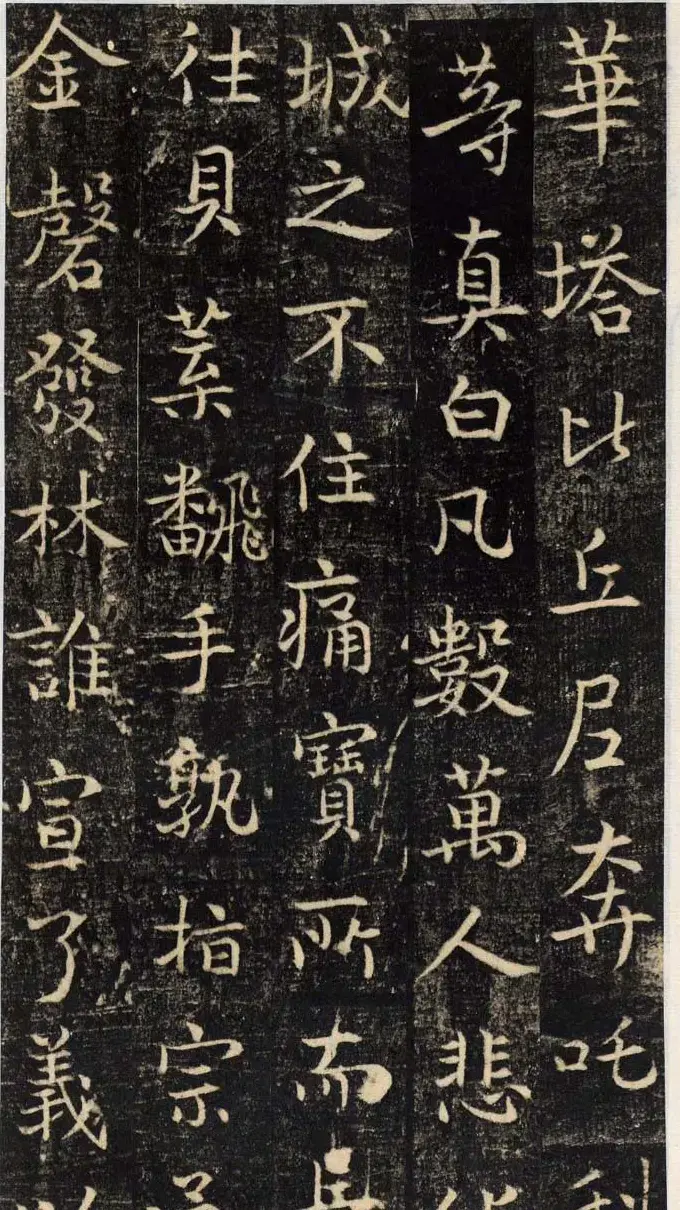 華塔比丘尼奔吒利
等真白凡數萬人悲
城之不住痛寶所而長
往貝葉翻手孰指宗
金磬發林誰宣了義